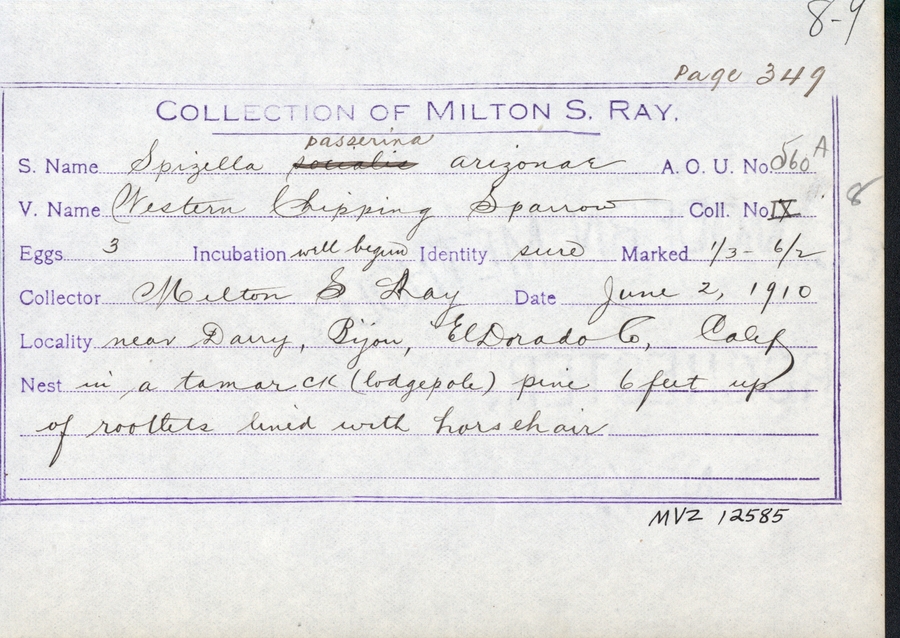 8-9
Page 349
COLLECTION OF MILTON S. RAY.
passerina
S. Name Spizella socialis arizonae A. O. U. No. 560 A
V. Name Western Chipping Sparrow Coll. No. IX 8
Eggs 3 Incubation well begun Identity sure Marked 1/3 - 6/2
Collector Milton S Ray Date June 2, 1910
Locality near Dairy, Bijou, ElDorado Co, Calif
Nest in a tamarack (lodgepole) pine 6 feet up
of rootlets lined with horsehair
MVZ 12585